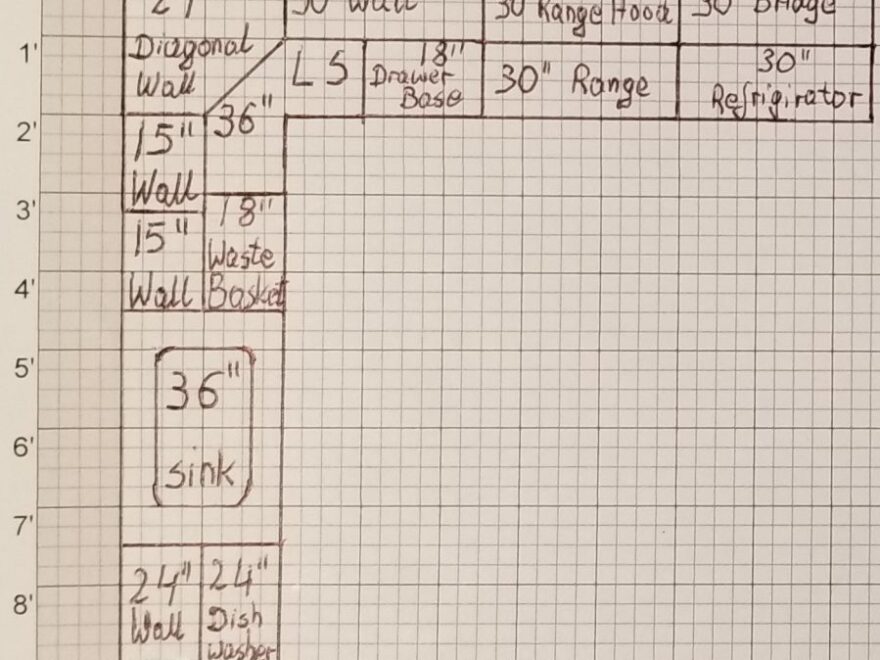 30" Wall
30" Range Hood
30" Bridge
1'
Diagonal
Wall
L S
18"
Drawer
Base
30" Range
30"
Refrigirator
2'
36"
15"
Wall
3'
18"
Waste
Basket
15"
Wall
4'
5'
36"
sink
6'
7'
8'
24"
Wall
24"
Dish
washer